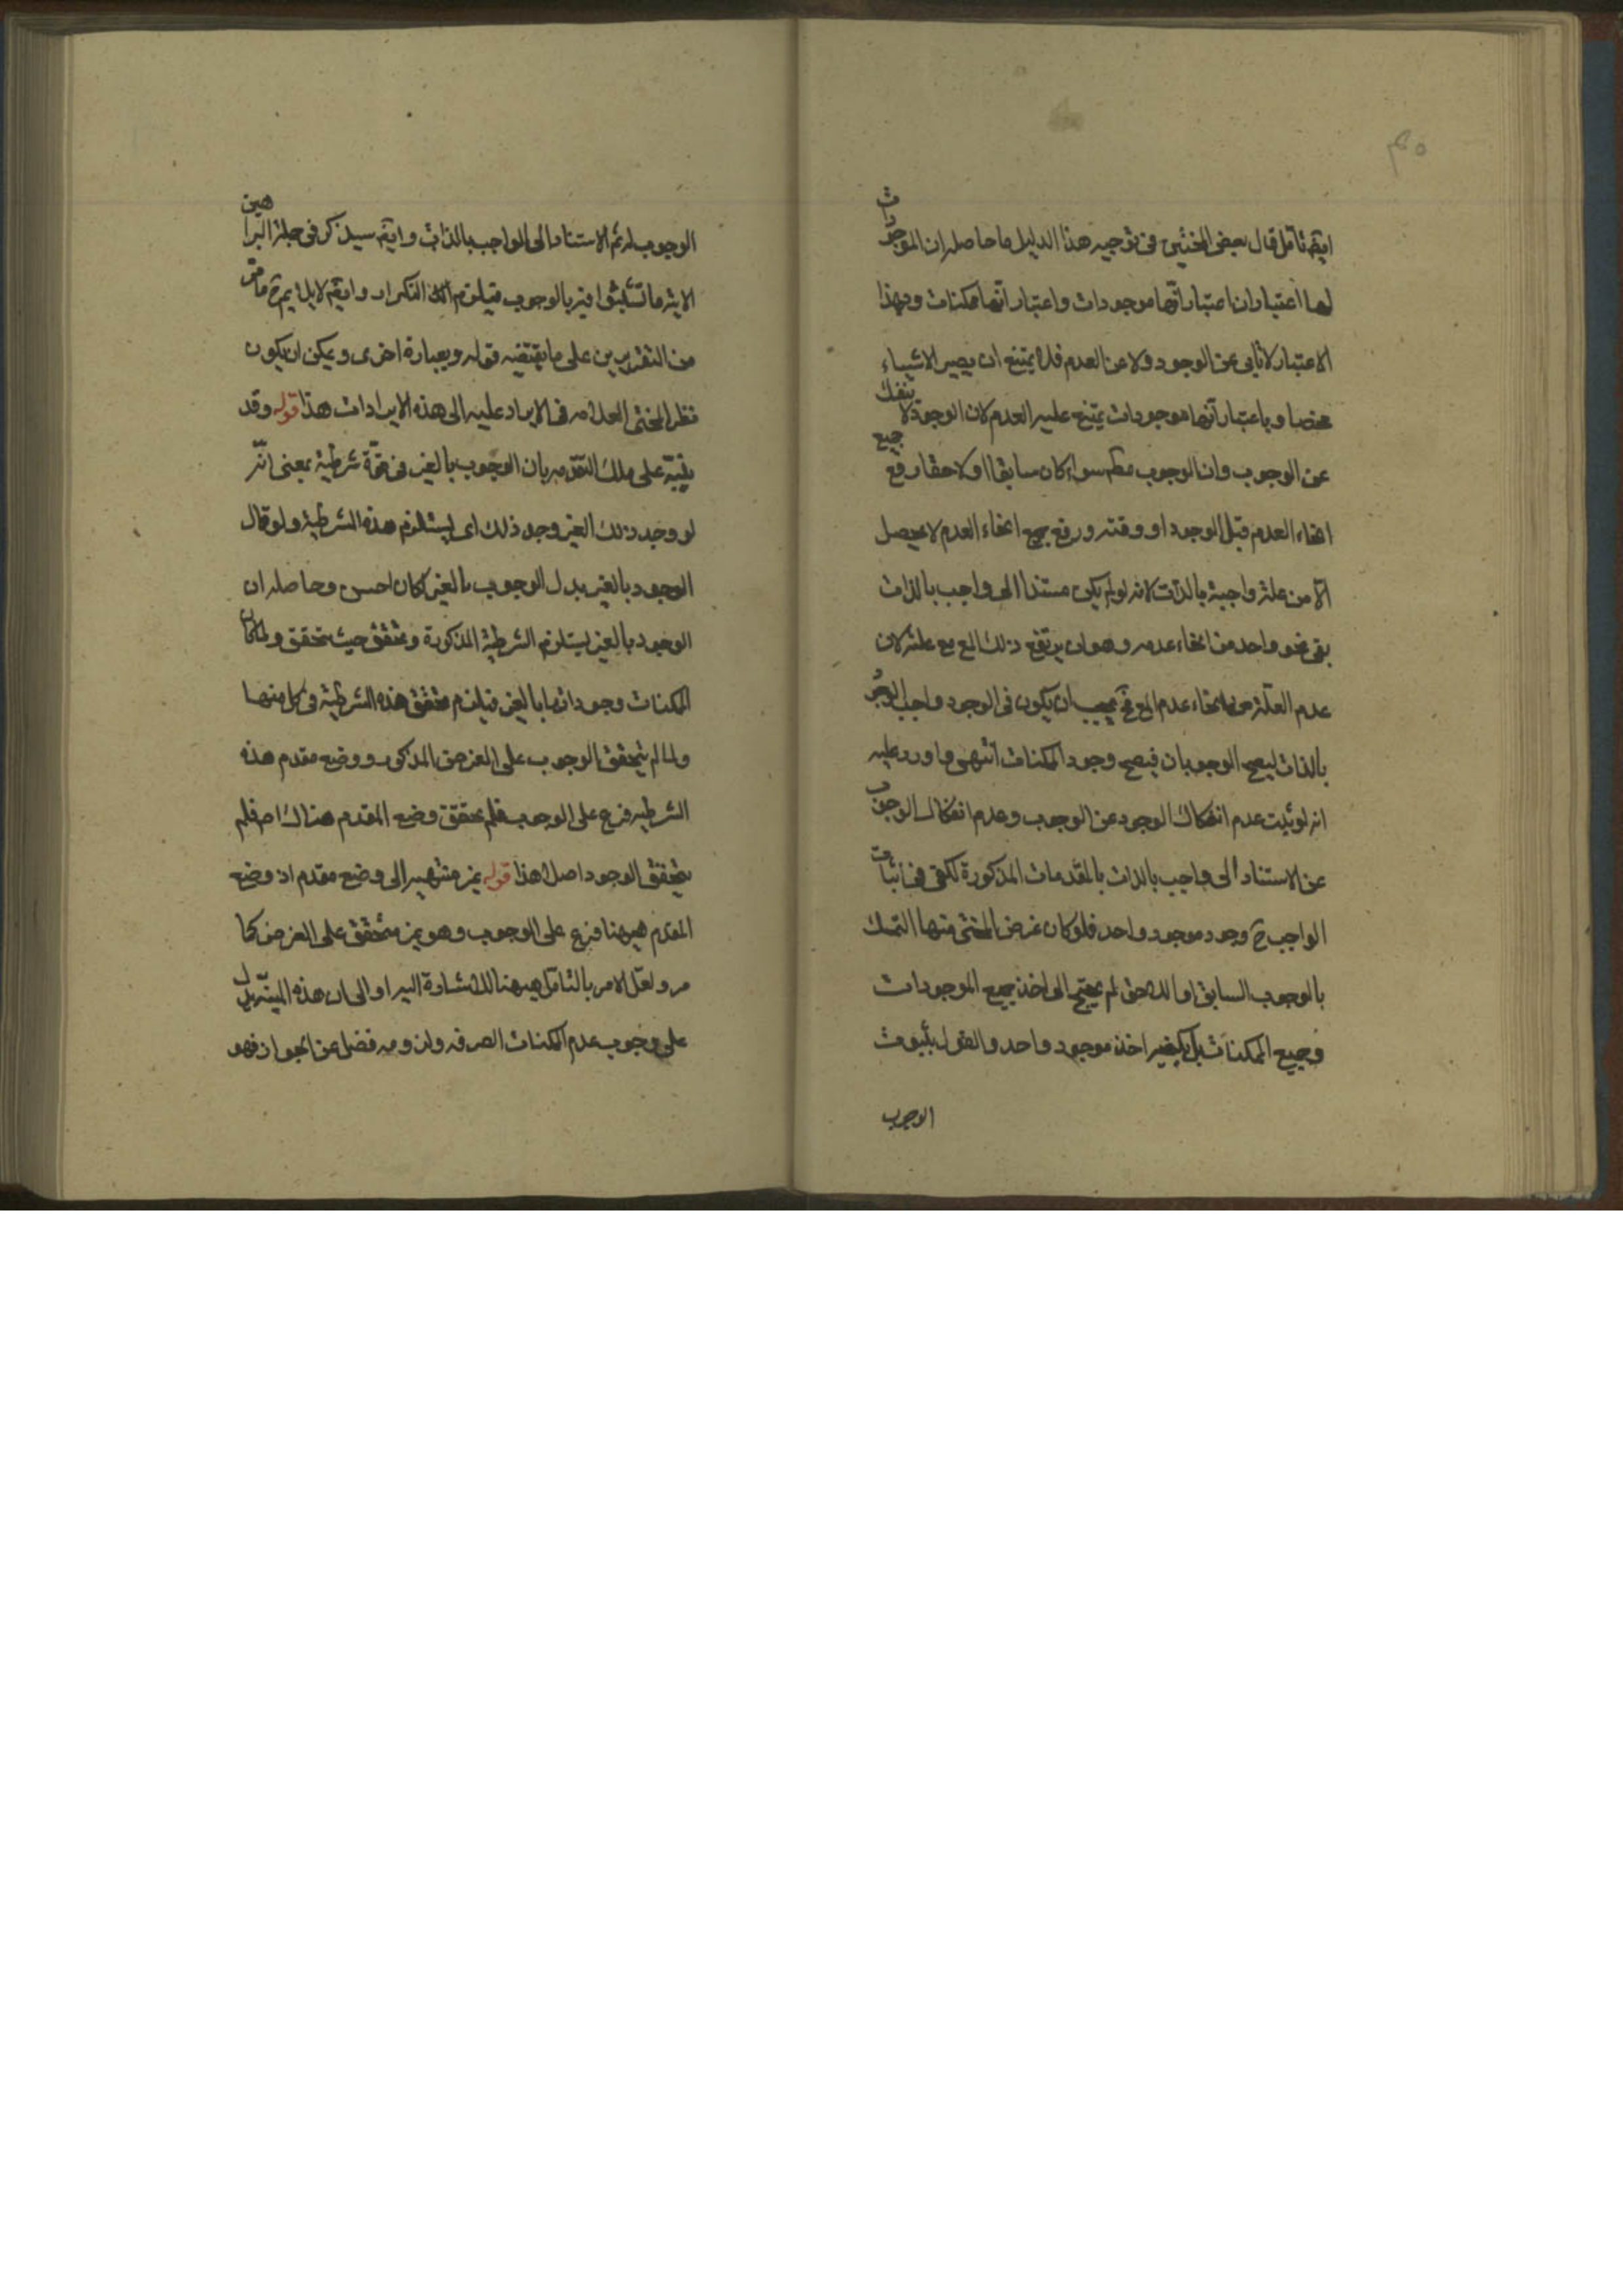 ايضا تأمل قال بعض المحشين فى توجيه هذا الدليل ما حاصله ان الموجودات
لها اعتباران اعتبار انها موجودات واعتبار انها ممكنات وبهذا
الاعتبار لا تابى عن الوجود ولا عن العدم فلا يمتنع ان يصير لا شيئاء
محضا وباعتبار انها موجودات يمتنع عليه العدم لان الوجود لا ينفك
عن الوجوب وان الوجوب مطم سواء كان سابقا او لاحقا رفع جميع
انحاء العدم قبل الوجود او وقته ورفع جميع انحاء العدم لا يحصل
الا من علة واجبة بالذات لانه لو لم يكن مستندا الى واجب بالذات
بقى نحو واحد من انحاء عدمه وهو ان يرتفع ذلك المع مع علته لان
عدم العلة من انحاء عدم المع فح يجب ان يكون فى الوجود واجب الوجود
بالذات ليصح الوجوبان فيصح وجود الممكنات انتهى واورد عليه
انه لو ثبت عدم انفكاك الوجود عن الوجوب وعدم انفكاك الوجوب
عن الاستناد الى واجب بالذات بالمقدمات المذكورة لكفى فى اثبات
الواجب ح وجود موجود واحد فلو كان غرض المحشى منها التمسك
بالوجوب السابق او اللاحق لم يحتج الى اخذ جميع الموجودات
وجميع الممكنات بل يكفيه اخذ موجود واحد والقول بثبوت
الوجوب
الوجوب له ثم الاستناد الى الواجب بالذات وايضا سيذكر فى جملة البراهين
الاتية ما تشبثوا فيه بالوجوب فيلزم التكرار وايضا لا يلايم ما مر
من التقريرين على ما يقتضيه قوله وبعبارة اخرى ويمكن ان يكون
نظر المحشى العلامه فى الايراد عليه الى هذه الايرادات هذا قوله وقد
ينبه على تلك المقدمه بان الوجوب بالغير فى قوة شرطية بمعنى انه
لو وجد ذلك الغير وجد ذلك اى يستلزم هذه الشرطية ولو قال
الوجود بالغير بدل الوجوب بالغير لكان احسن وحاصله ان
الوجود بالغير يستلزم الشرطية المذكورة وتحقق حيث تحقق ولما كان
الممكنات وجوداتها بالغير فيلزم تحقق هذه الشرطية فى كل منها
ولما لم يتحقق الوجوب على الفرض المذكور ووضع مقدم هذه
الشرطيه فرع على الوجوب فلم يتحقق وضع المقدم هناك اص فلم
يتحقق الوجود اصلا هذا قوله غير منتهيه الى وضع مقدم اذ وضع
المقدم هيهنا فرع على الوجوب وهو غير متحقق على الفرض كما
مر ولعل الامر بالتأمل هيهنا للاشارة اليه او الى ان هذه البينة يدل
على وجوب عدم الممكنات الصرفه ولزومه فضلا عن الجواز فهو